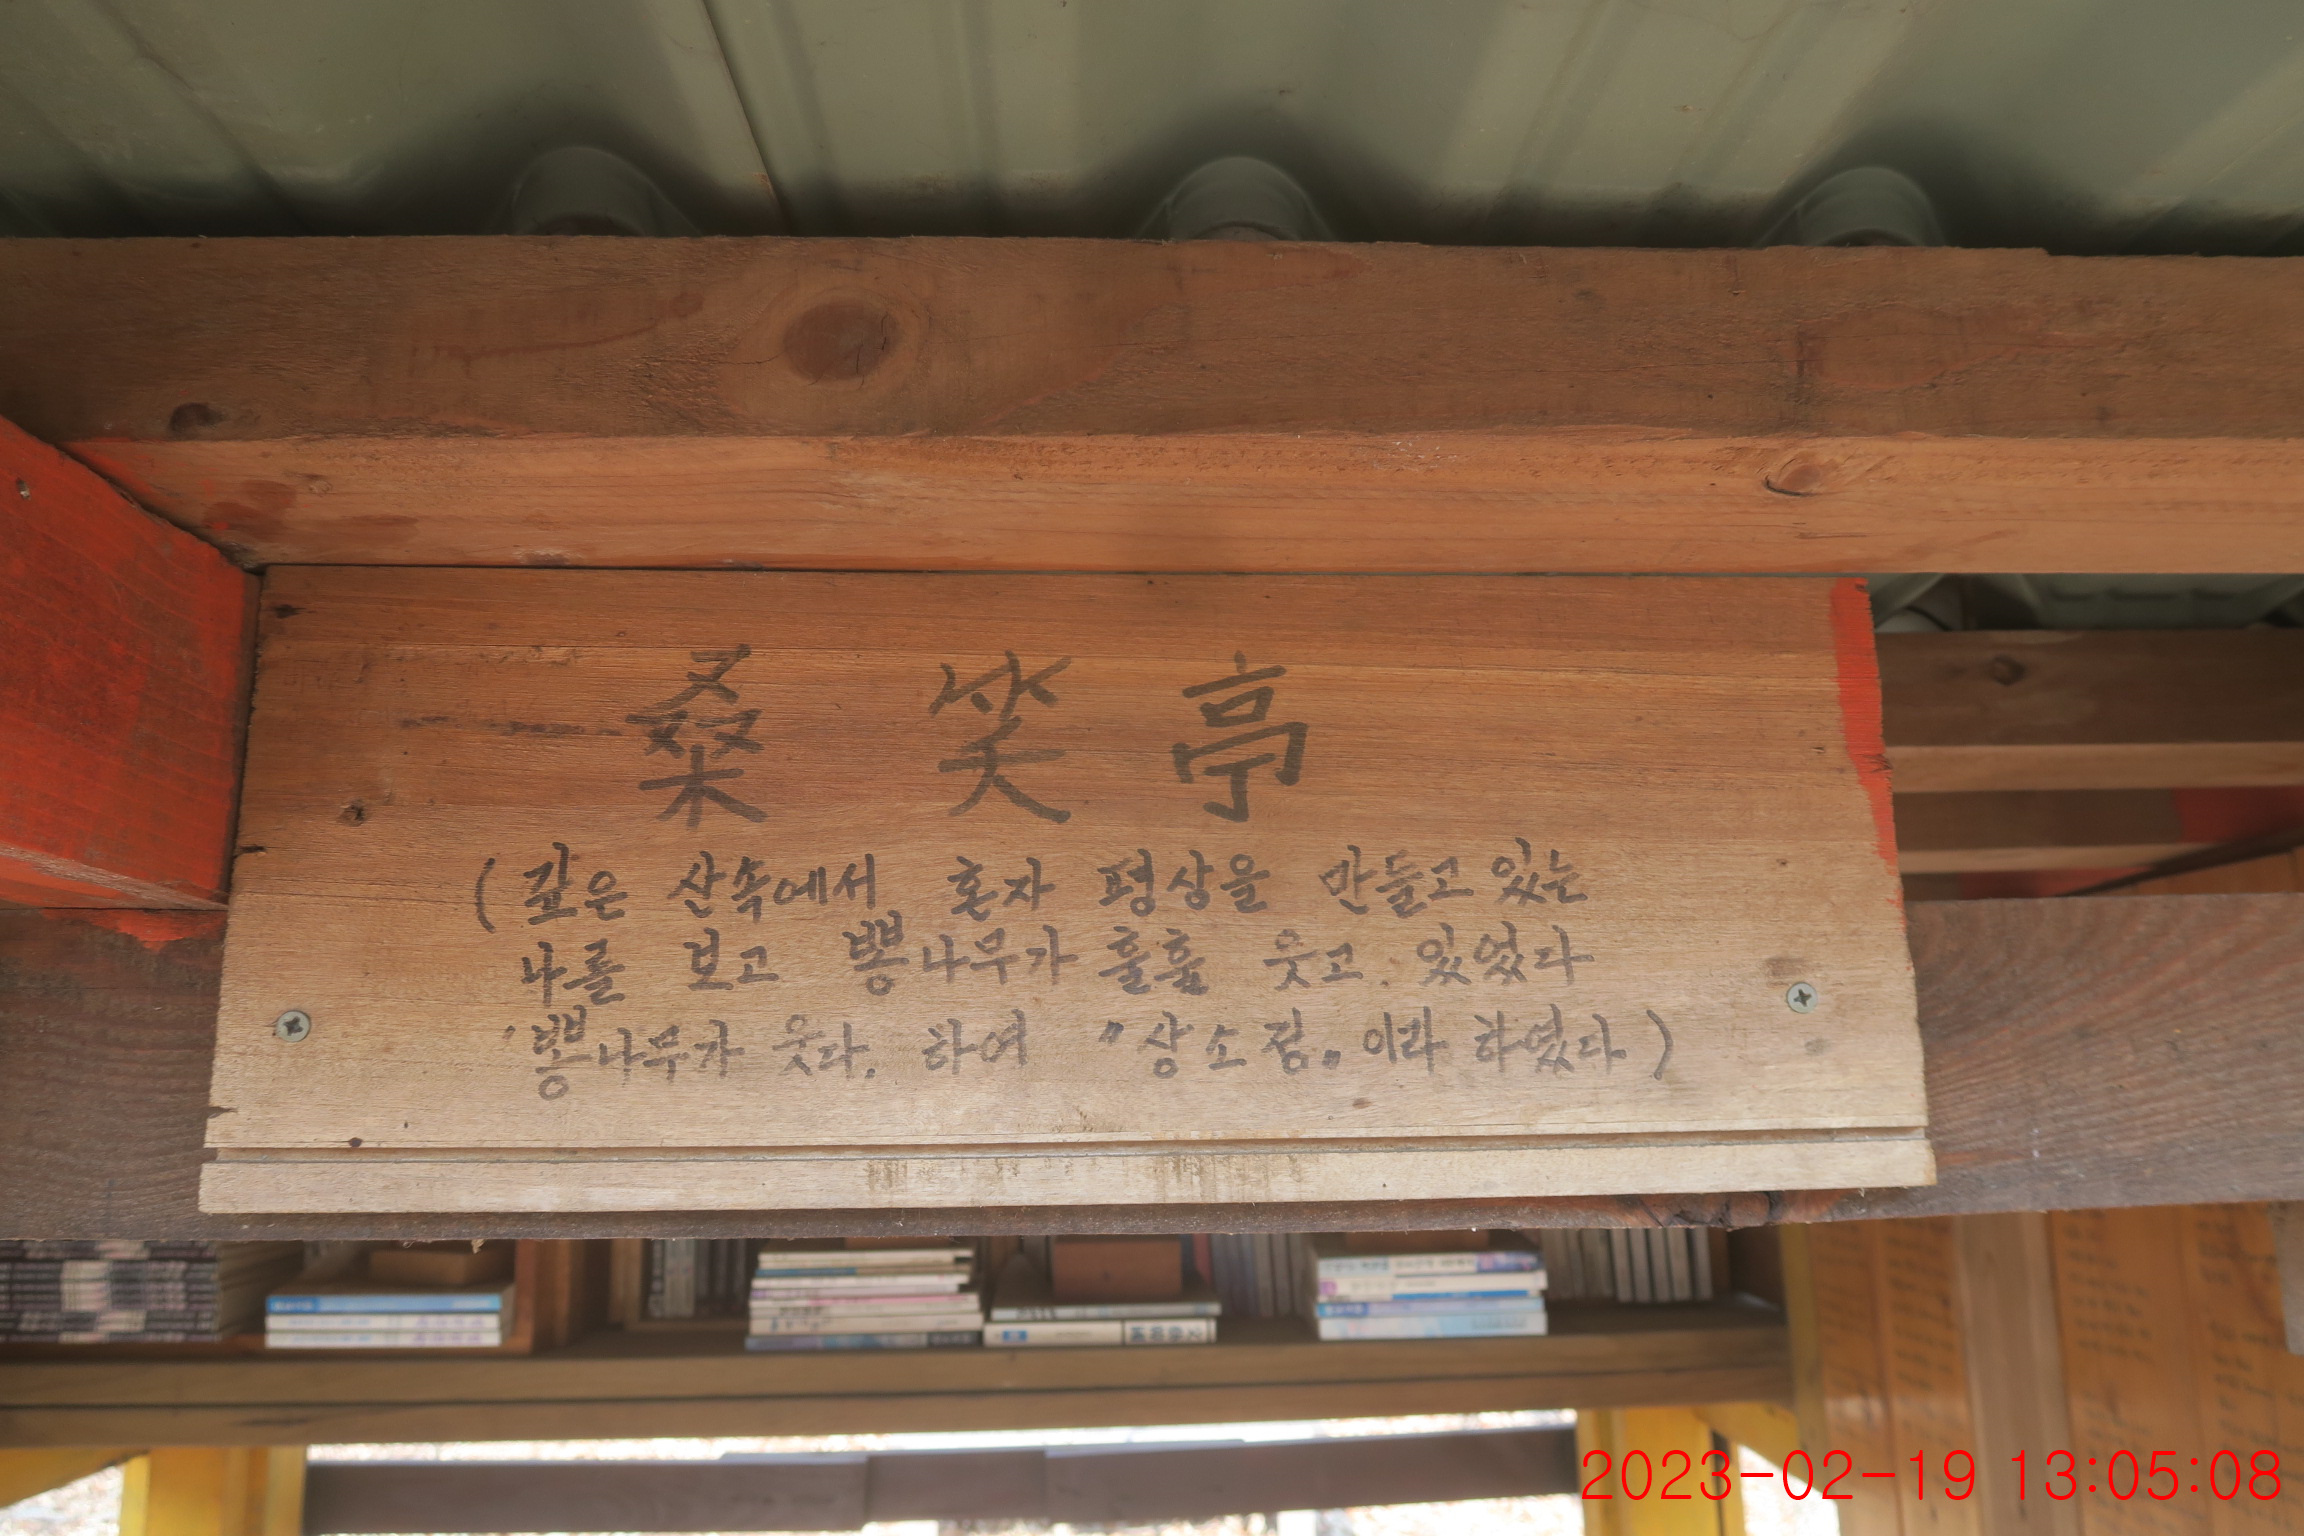 桑 笑 亭
(깊은 산속에서 혼자 평상을 만들고 있는
나를 보고 뽕나무가 훌훌 웃고 있었다
뽕나무가 웃다. 하여 "상소정" 이라 하였다)
2023-02-19 13:05:08